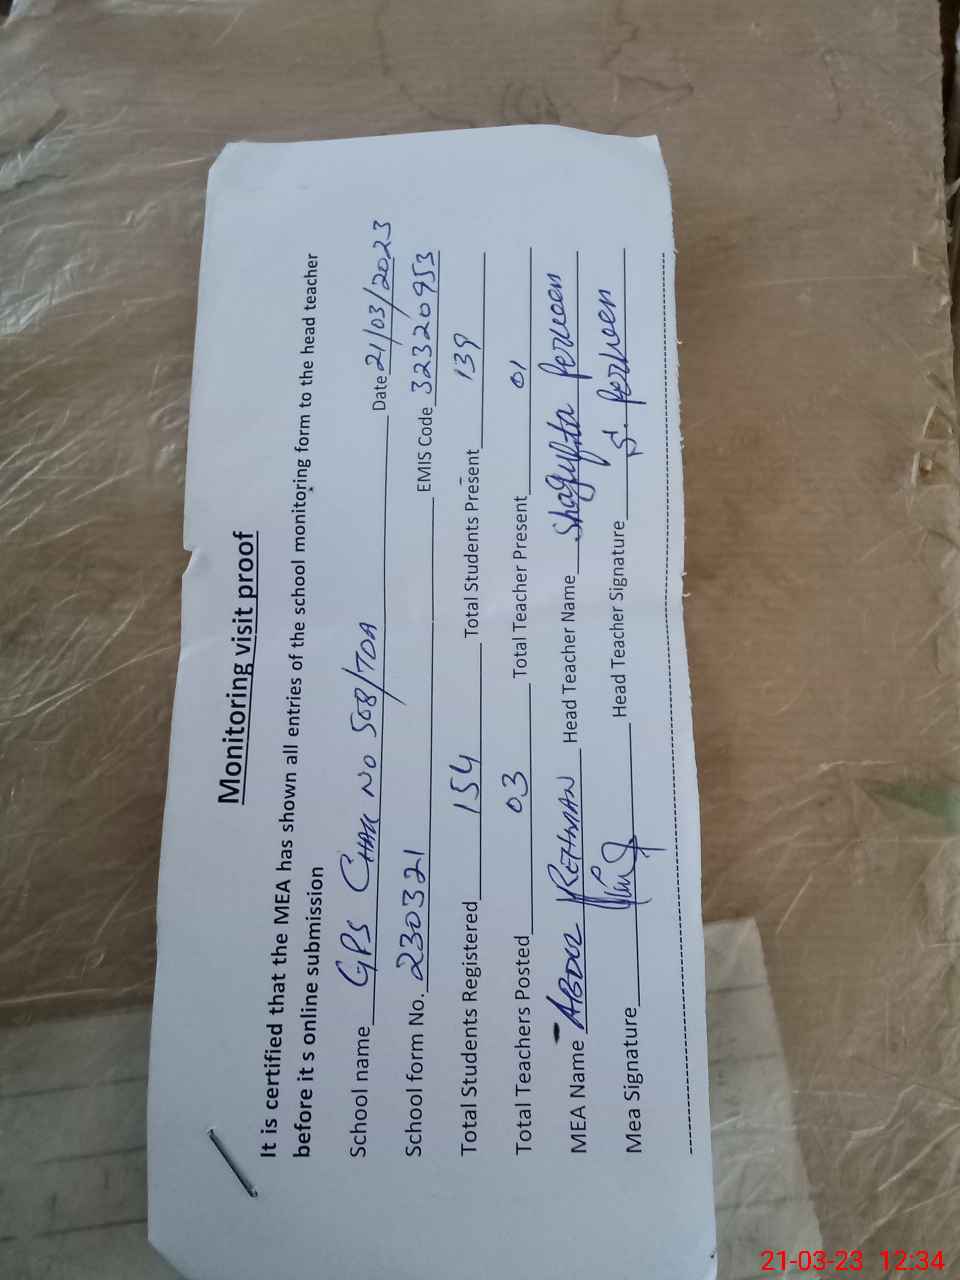 Monitoring visit proof
It is certified that the MEA has shown all entries of the school monitoring form to the head teacher
before it s online submission
School name GPS CHAK NO 508/TDA Date 21/03/2023
School form No. 230321 EMIS Code 32320953
Total Students Registered 154 Total Students Present 139
Total Teachers Posted 03 Total Teacher Present 01
MEA Name ABDUL REHMAN Head Teacher Name Shagufta Perveen
Mea Signature Head Teacher Signature S. Perveen
21-03-23 12:34